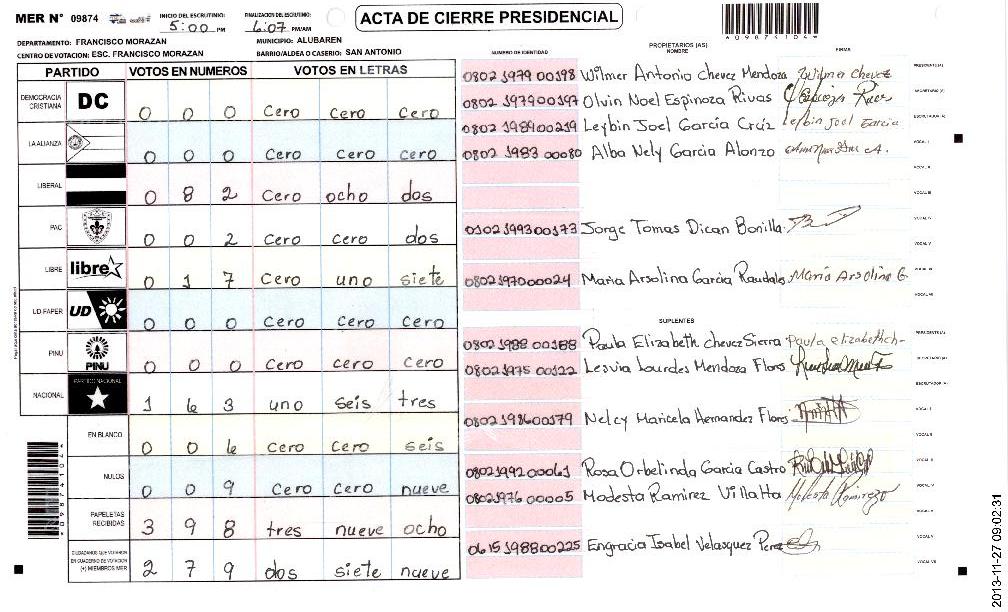 MER N° 09874
INICIO DEL ESCRUTINIO: 5:00 PM
FINALIZACION DEL ESCUTINIO: 6:07 PM/AM
ACTA DE CIERRE PRESIDENCIAL
*09874104*
DEPARTAMENTO: FRANCISCO MORAZAN
MUNICIPIO: ALUBAREN
CENTRO DE VOTACION: ESC. FRANCISCO MORAZAN
BARRIO/ALDEA O CASERIO: SAN ANTONIO
PARTIDO VOTOS EN NUMEROS VOTOS EN LETRAS
DEMOCRACIA CRISTIANA DC 0 0 0 cero cero cero
LA ALIANZA 0 0 0 cero cero cero
LIBERAL 0 8 2 cero ocho dos
PAC 0 0 2 cero cero dos
LIBRE libre 0 1 7 cero uno siete
UD FAPER UD 0 0 0 cero cero cero
PINU PINU 0 0 0 cero cero cero
NACIONAL PARTIDO NACIONAL 1 6 3 uno seis tres
EN BLANCO 0 0 6 cero cero seis
NULOS 0 0 9 cero cero nueve
PAPELETAS RECIBIDAS 3 9 8 tres nueve ocho
CIUDADANOS QUE VOTARON EN CUADERNO DE VOTACION (+) MIEMBROS MER 2 7 9 dos siete nueve
*09874104*
NUMERO DE IDENTIDAD PROPIETARIOS (AS) NOMBRE FIRMA
0802 1979 00198 Wilmer Antonio Chevez Mendoza Wilmer Chevez PRESIDENTE(A)
0802 1979 00197 Olvin Noel Espinoza Rivas SECRETARIO (A)
0802 1989 00219 Leybin Joel García Crúz Leybin Joel Garcia ESCRUTADOR (A)
0802 1983 00080 Alba Nely Garcia Alonzo VOCAL I
VOCAL II
VOCAL III
0102 1993 00173 Jorge Tomas Dican Bonilla VOCAL IV
VOCAL V
0802 1970 00024 Maria Arsolina Garcia Raudales Maria Arsolina G. VOCAL VI
VOCAL VII
SUPLENTES
0802 1988 00188 Paula Elizabeth Chevez Sierra Paula elizabeth ch- PRESIDENTE(A)
0802 1975 00122 Lesvia Lourdes Mendoza Flores SECRETARIO (A)
ESCRUTADOR (A)
0802 1986 00179 Nelcy Maricela Hernandez Flores VOCAL I
VOCAL II
0802 1992 00061 Rosa Orbelinda Garcia Castro VOCAL III
0802 1976 00005 Modesta Ramirez Villatta Modesta Ramirez VOCAL IV
VOCAL V
0615 1988 00225 Engracia Isabel Velasquez Perez VOCAL VI
VOCAL VII
2013-11-27 09:02:31